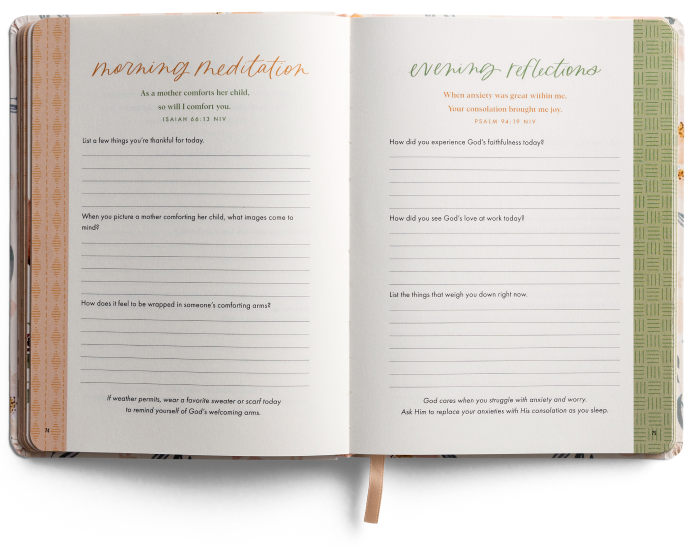 morning meditation
As a mother comforts her child,
so will I comfort you.
ISAIAH 66:13 NIV
List a few things you're thankful for today.
When you picture a mother comforting her child, what images come to
mind?
How does it feel to be wrapped in someone's comforting arms?
If weather permits, wear a favorite sweater or scarf today
to remind yourself of God's welcoming arms.
evening reflections
When anxiety was great within me,
Your consolation brought me joy.
PSALM 94:19 NIV
How did you experience God's faithfulness today?
How did you see God's love at work today?
List the things that weigh you down right now.
God cares when you struggle with anxiety and worry.
Ask Him to replace your anxieties with His consolation as you sleep.